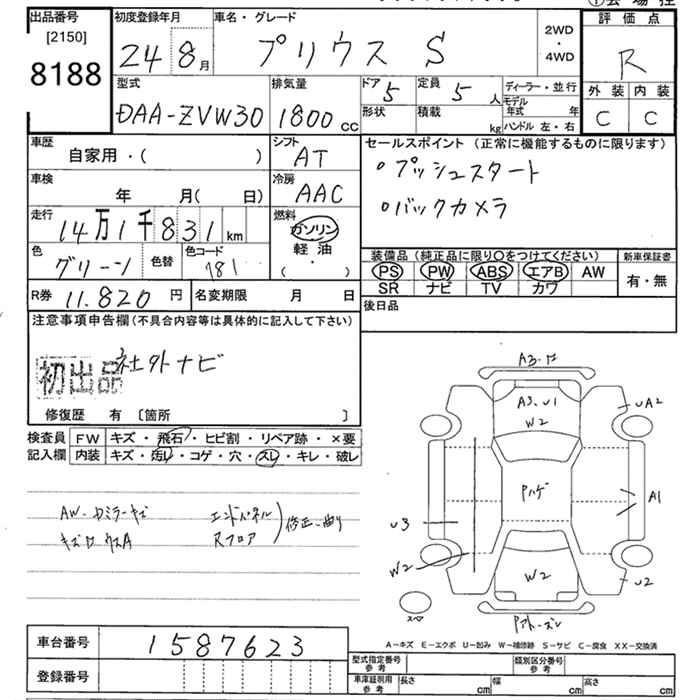 出品番号
[2150]
8188
初度登録年月
24 8月
車名・グレード
プリウス S
2WD
・
4WD
評価点
R
外装 内装
C C
型式
DAA-ZVW30
排気量
1800 cc
ドア 5
形状
定員 5 人
積載 kg
ディーラー・並行
モデル
年式 年
ハンドル 左・右
車歴
自家用・( )
シフト
AT
車検
年 月( 日)
冷房
AAC
走行
14万1千831km
燃料
ガソリン
軽油
( ・ )
色
グリーン
色替
色コード
781
R券 11.820 円
名変期限 月 日
セールスポイント(正常に機能するものに限ります)
○プッシュスタート
○バックカメラ
装備品(純正品に限り〇をつけてください)
PS PW ABS エアB AW
SR ナビ TV カワ
新車保証書
有・無
後日品
注意事項申告欄(不具合内容等は具体的に記入して下さい)
初出品
社外ナビ
修復歴 有 〔箇所 〕
検査員
記入欄
FW キズ・飛石・ヒビ割・リペア跡・×要
内装 キズ・汚レ・コゲ・穴・スレ・キレ・破レ
エンドパネル
Rフロア
修正・曲り
A3.
A3.U1
W2
UA2
Pハゲ
A1
U3
W2
W2
U2
スペア
A-キズ E-エクボ U-凹み W-補修跡 S-サビ C-腐食 XX-交換済
車台番号 1587623
登録番号
型式指定番号
参考
類別区分番号
参考
車庫証明用
参考
長さ cm
幅 cm
高さ cm